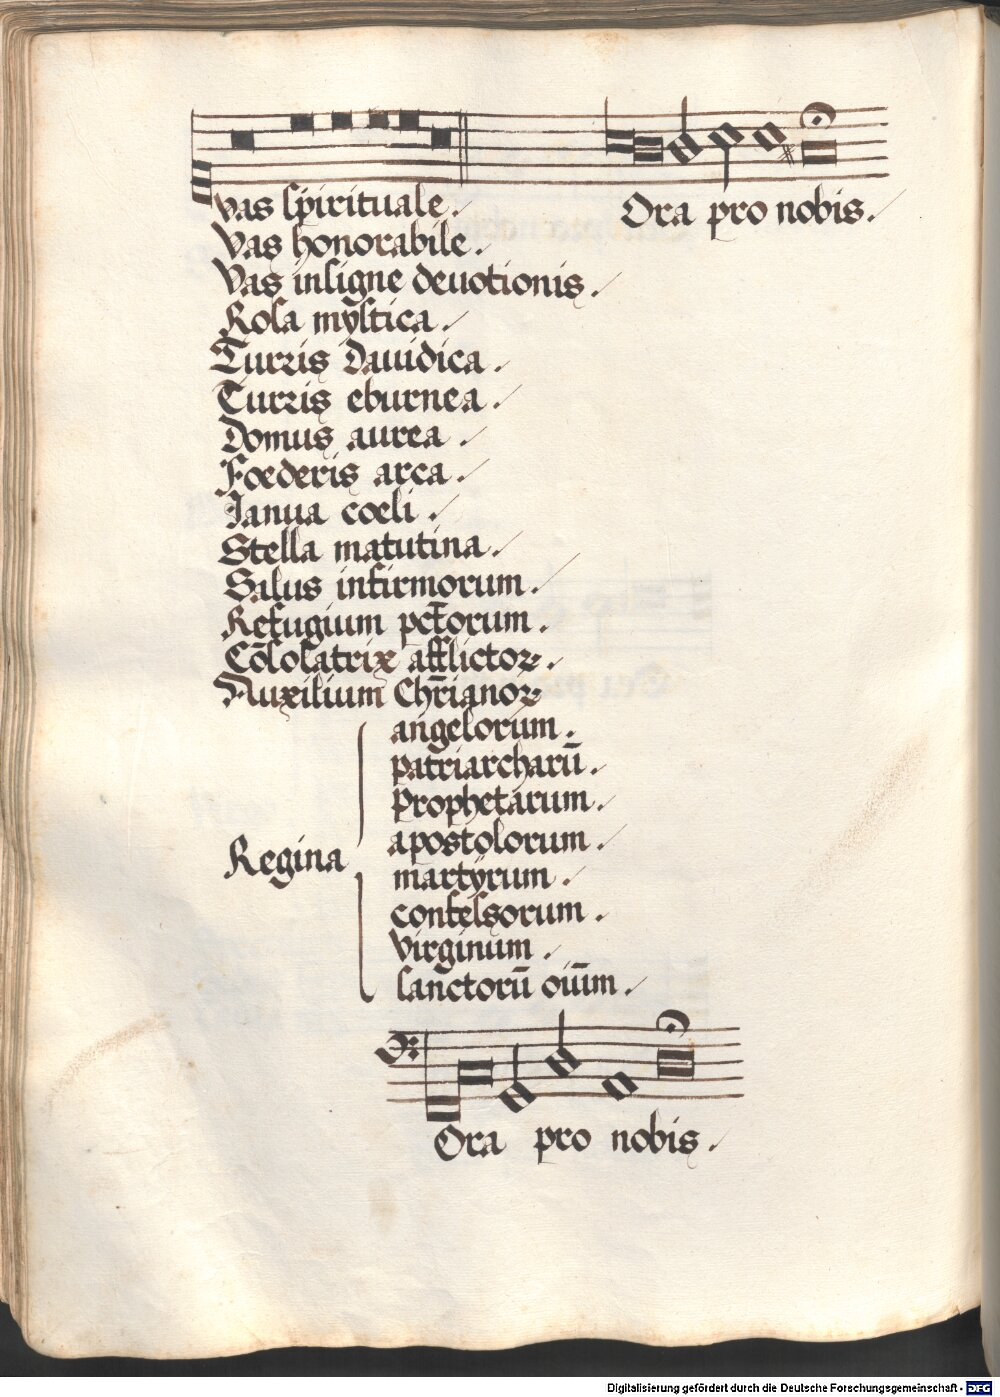 Vas spirituale. Ora pro nobis.
Vas honorabile.
Vas insigne deuotionis.
Rosa mystica.
Turris Dauidica.
Turris eburnea.
Domus aurea.
Foederis arca.
Ianua coeli.
Stella matutina.
Salus infirmorum.
Refugium pct̄orum.
Cōsolatrix afflictoꝝ.
Auxilium Chr̄ianoꝝ
angelorum.
patriarcharū.
Prophetarum.
apostolorum.
Regina
martÿrum.
confessorum.
virginum.
sanctorū oīum.
Ora pro nobis.
Digitalisierung gefördert durch die Deutsche Forschungsgemeinschaft - DFG